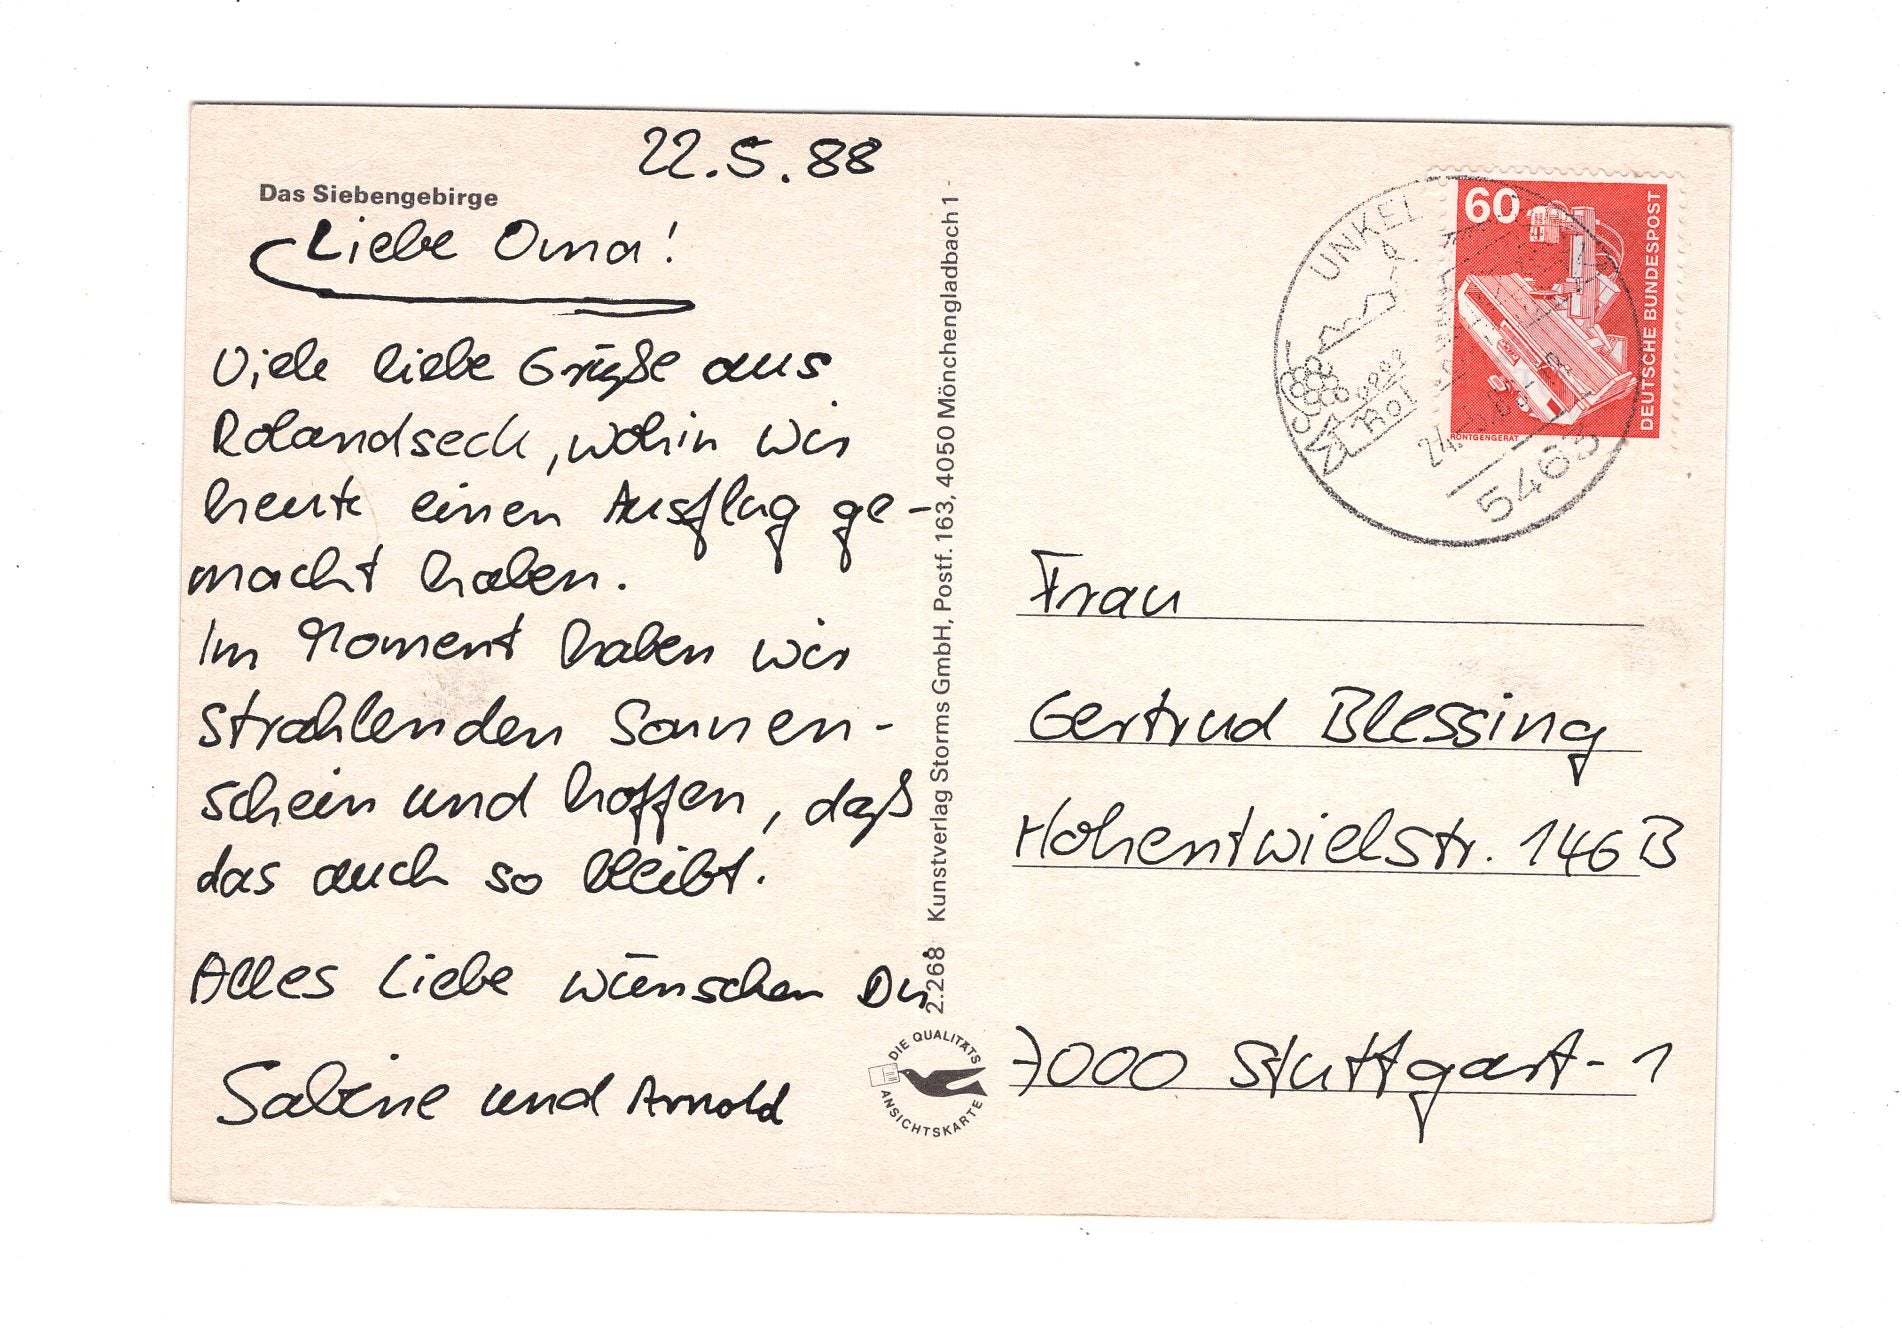 22.5.88
Das Siebengebirge
Liebe Oma!
Viele liebe Grüße aus
Rolandseck, wohin wir
heute einen Ausflug ge-
macht haben.
Im Moment haben wir
strahlenden Sonnen-
schein und hoffen, daß
das auch so bleibt.
Alles Liebe wünschen Dir
Sabine und Arnold
2.268 Kunstverlag Storms GmbH, Postf. 163, 4050 Mönchengladbach 1
DIE QUALITÄTS
ANSICHTSKARTE
UNKEL
5463
60
DEUTSCHE BUNDESPOST
RÖNTGENGERÄT
Frau
Gertrud Blessing
Hohentwielstr. 146 B
7000 Stuttgart-1